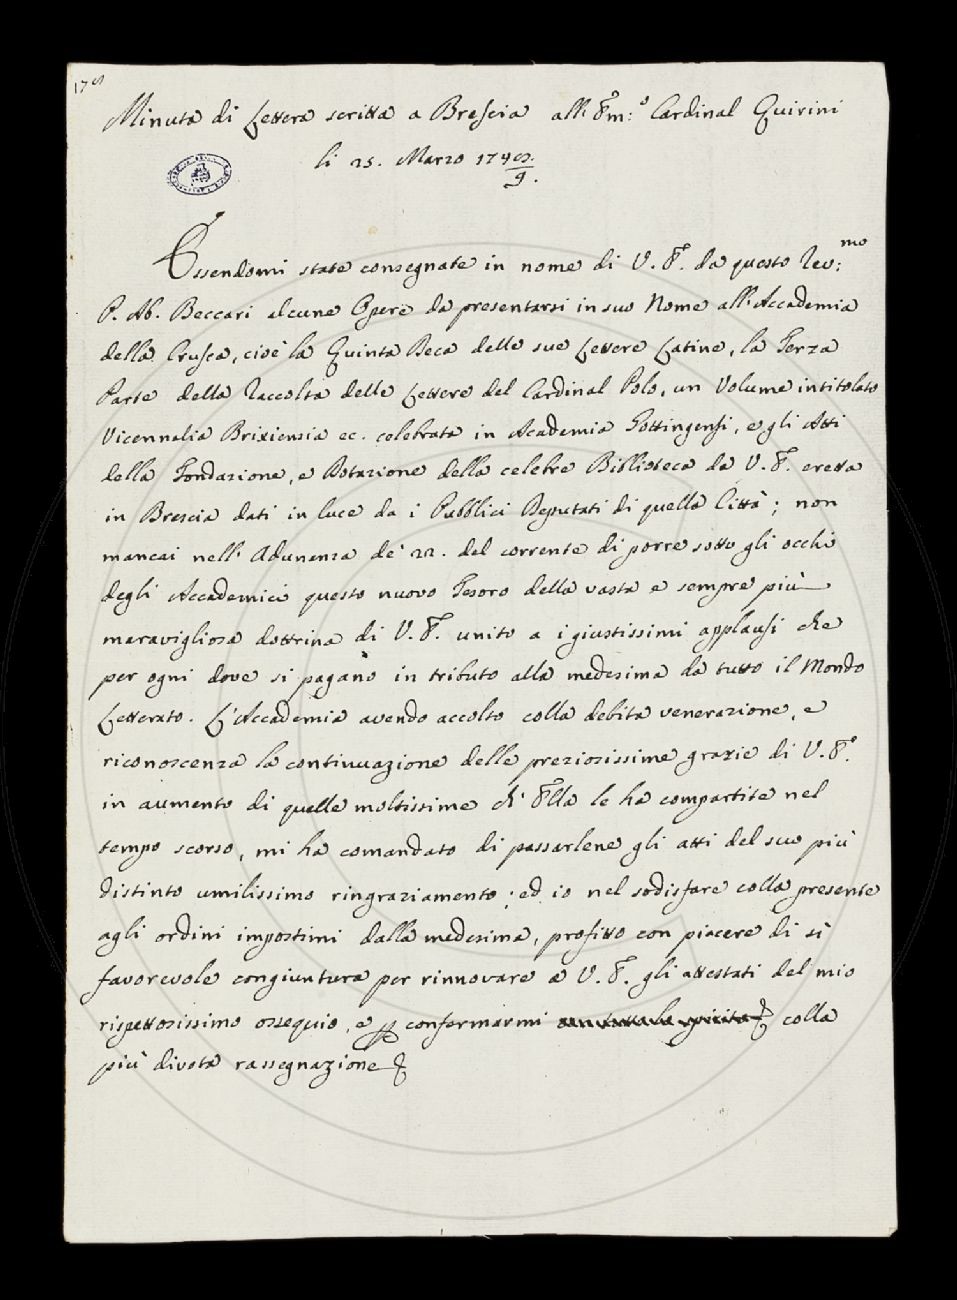 Minuta di Lettera scritta a Brescia all' Em:o Cardinal Quirini
li 25. Marzo 174
9.
Essendomi state consegnate in nome di V. E. da questo Rev:mo
P. Ab. Beccari alcune Opere da presentarsi in suo Nome all'Accademia
della Crusca, cioè la Quinta Deca delle sue Lettere Latine, la Terza
Parte della Raccolta delle Lettere del Cardinal Polo, un Volume intitolato
Vicennalia Brixiensia ec. celebrata in Academia Gottingensi, e gli Atti
della Fondazione, e Dotazione della celebre Biblioteca da V. E. eretta
in Brescia dati in luce da i Pubblici Deputati di quella Città; non
mancai nell' Adunanza de' 22. del corrente di porre sotto gli occhi
degli Accademici questo nuovo Tesoro della vasta e sempre più
maravigliosa dottrina di V. E. unito a i giustissimi applausi che
per ogni dove si pagano in tributo alla medesima da tutto il Mondo
Letterato. L'Accademia avendo accolto colla debita venerazione, e
riconoscenza la continuazione delle preziosissime grazie di V. E.
in aumento di quelle moltissime ch' Ella le ha compartite nel
tempo scorso, mi ha comandato di passarlene gli atti del suo più
distinto umilissimo ringraziamento; ed io nel sodisfare colla presente
agli ordini impostimi dalla medesima, profitto con piacere di sì
favorevole congiuntura per rinnovare a V. E. gli attestati del mio
rispettosissimo ossequio, e confermarmi colla
più divota rassegnazione